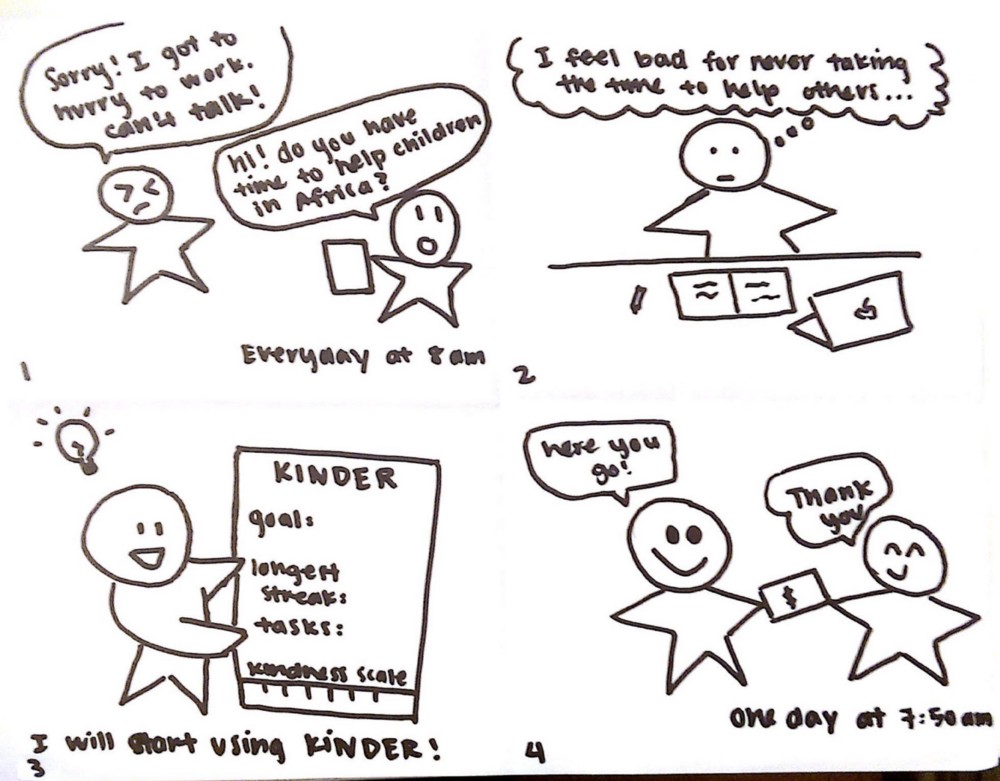 Sorry! I got to
hurry to work.
can't talk!
hi! do you have
time to help children
in Africa?
Everyday at 8 am
1
I feel bad for never taking
the time to help others...
2
KINDER
goal:
longest
streak:
tasks:
kindness scale
I will start using KINDER!
3
here you
go!
Thank
you
$
one day at 7:50 am
4